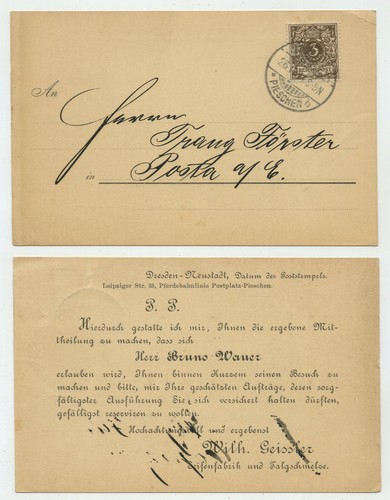 3
PIESCHEN
An
Herrn
Franz Förster
in Posta a/E.
Dresden-Neustadt, Datum des Poststempels.
Leipziger Str. 35, Pferdebahnlinie Postplatz-Pieschen.
P. P.
Hierdurch gestatte ich mir, Ihnen die ergebene Mit-
theilung zu machen, dass sich
Herr Bruno Wauer
erlauben wird, Ihnen binnen Kurzem seinen Besuch zu
machen und bitte, mir Ihre geschätzten Aufträge, deren sorg-
fältigster Ausführung Sie sich versichert halten dürften,
gefälligst reserviren zu wollen.
Hochachtungsvoll und ergebenst
Wilh. Geissler
Seifenfabrik und Talgschmelze.